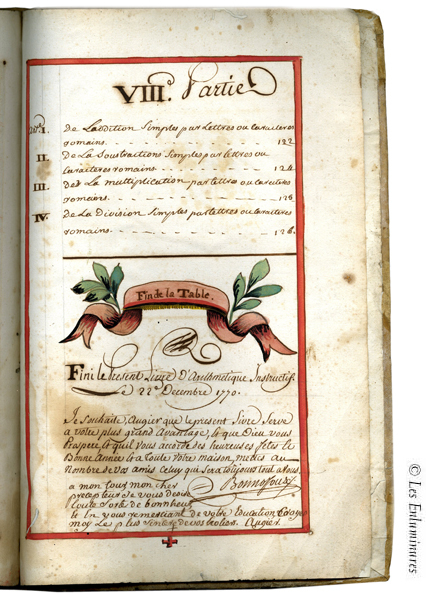 VIII.e Partie
I. De Laddition Simples par Lettres ou caracteres
romains. 122
II. De La Soustractions Simples par lettres ou
caracteres romains. 124
III. La multiplication par lettres ou caracteres
romains. 125
IV. De La Division Simples par lettres ou caracteres
romains. 126.
Fin de la Table.
Fini le Present Livre D'Arithmetique Instructif
22e Decembre 1770.
Je Souhaite, Augier que le present Livre Serve
a votre plus grand Avantage, que Dieu vous
et quil vous acorde des heureuses fêtes et
Bonne Année & a toute votre maison,
Nombre de vos amis Celuy qui Sera toujours tout a vous
a mon tour mon cher
precepteur je vous desire
toute sorte de bonheur
vous remerciant de votre
moy Le plus de vos Augier
© Les Enluminures